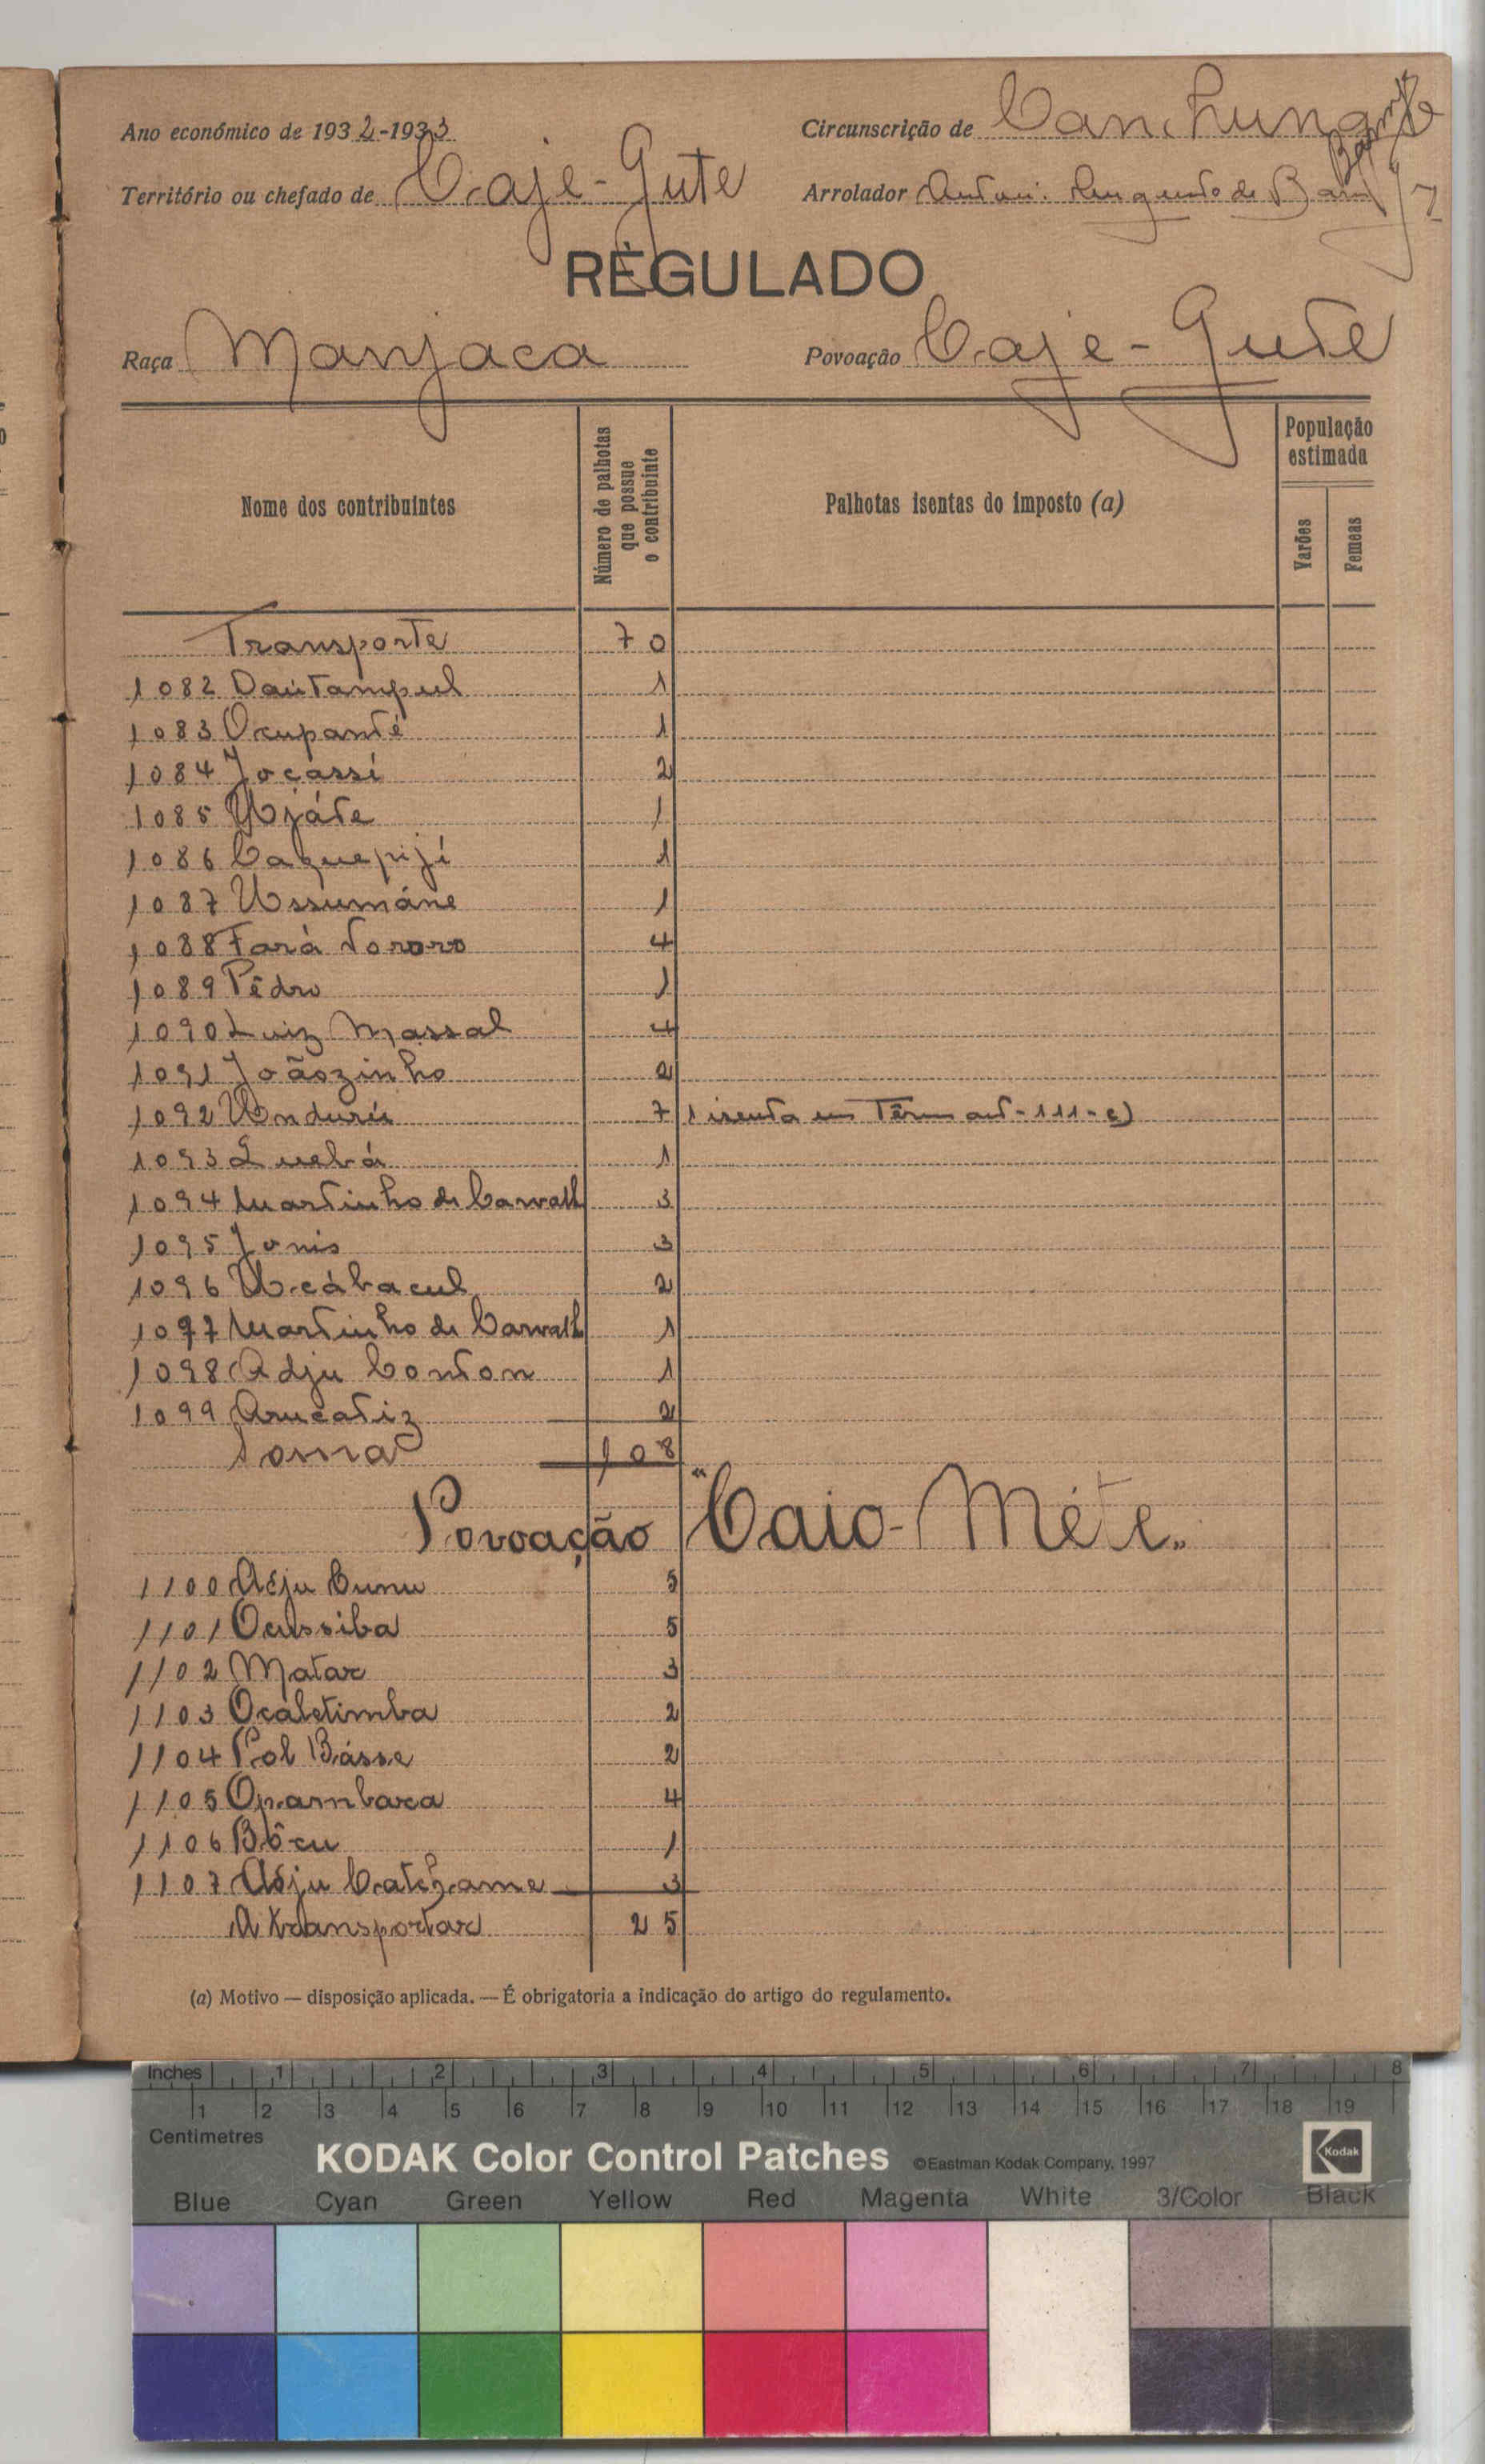 Ano económico de 1932-1933
Circunscrição de Canchungo
Território ou chefado de Caje-Gute
Arrolador de
REGULADO
Raça Manjaca
Povoação Caje-Gute
Nome dos contribuintes
Número de palhotas que possue o contribuinte
Palhotas isentas do imposto (a)
População estimada
Varões
Femeas
Transporte 70
1082 Dautampul 1
1083 Ocupanté 1
1084 Jocassi 2
1085 Ujáte 1
1086 Caquepijí 1
1087 Ussumáne 1
1088 Fará Tororo 4
1089 Pêdro 1
1090 Luiz Massal 4
1091 Joãozinho 2
1092 Undurú 7 1 isenta art-111-c)
1093 Quebá 1
1094 Martinho de Carvalh 3
1095 Jonis 3
1096 Ucábacul 2
1097 Martinho de Carvalh 1
1098 Adju Conton 1
1099 Arucatiz 2
Soma 108
Povoação "Caio-Méte"
1100 Adju Cunu 5
1101 Ocussiba 5
1102 Matar 3
1103 Ocaletimba 2
1104 Pol Básse 2
1105 Opambara 4
1106 Bôcu 1
1107 Adju 3
A transportar 25
(a) Motivo — disposição aplicada. — É obrigatoria a indicação do artigo do regulamento.
Inches 1 2 3 4 5 6 7 8
1 2 3 4 5 6 7 8 9 10 11 12 13 14 15 16 17 18 19
Centimetres
KODAK Color Control Patches ©Eastman Kodak Company, 1997 Kodak
Blue Cyan Green Yellow Red Magenta White 3/Color Black